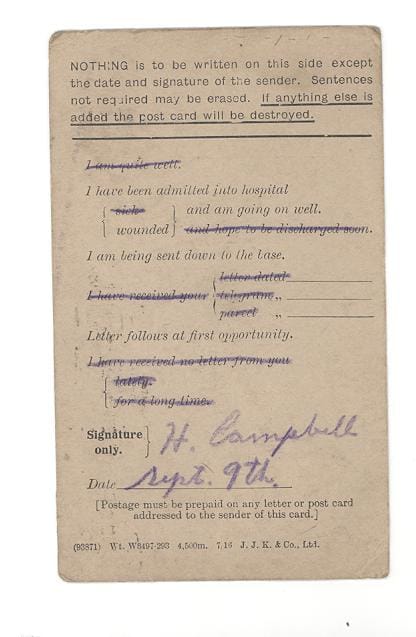 NOTHING is to be written on this side except
the date and signature of the sender. Sentences
not required may be erased. If anything else is
added the post card will be destroyed.
I am quite well.
I have been admitted into hospital
sick and am going on well.
wounded and hope to be discharged soon.
I am being sent down to the base.
letter dated
I have received your telegram „
parcel „
Letter follows at first opportunity.
I have received no letter from you
lately.
for a long time.
Signature
only. H. Campbell
Date Sept. 9th.
[Postage must be prepaid on any letter or post card
addressed to the sender of this card.]
(93871) Wt. W3497-293 4,500m. 7/16 J. J. K. & Co., Ltd.